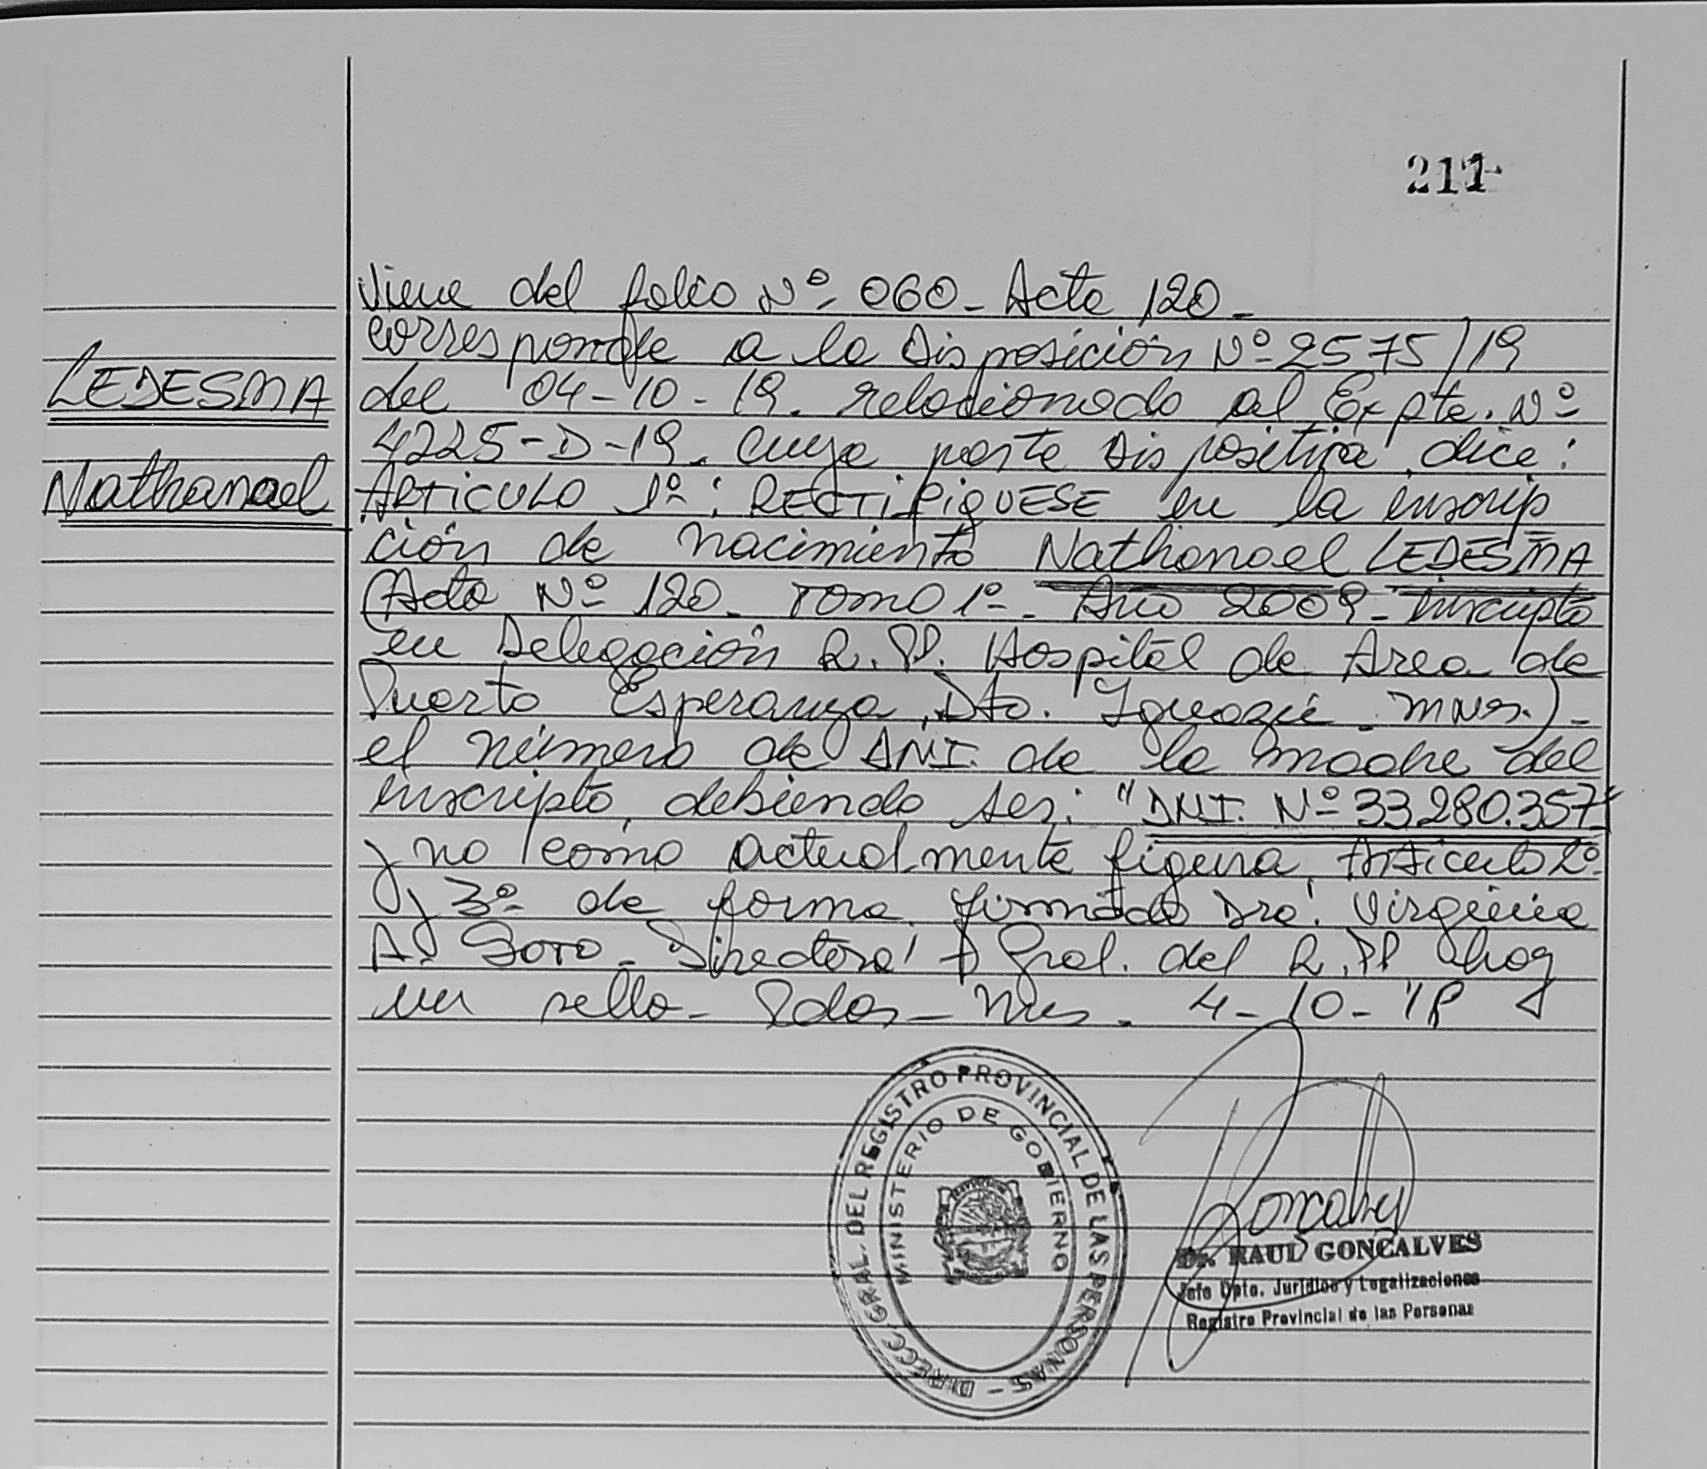 211
Viene del folio Nº 060 - Acta 120 -
corresponde a la Disposición Nº 2575/19
LEDESMA
del 04-10-19. relacionado al Expte. Nº
4225-D-19. cuya parte Dispositiva dice:
Nathanael
ARTICULO 1º: RECTIFIQUESE en la inscrip
ción de nacimiento Nathanael LEDESMA
(Acta Nº 120. Tomo 1º - Año 2009 - Inscripto
en Delegación R.PP. Hospital de Area de
Puerto Esperanza, Dto. Iguazú. Mnes.) -
el número de DNI. de la madre del
inscripto, debiendo ser: "DNI. Nº 33.280.357"
y no como actualmente figura. Articulo 2º
y 3º de forma. firmado Dra. Virginia
A. Soto - Directora Gral. del R.PP hay
un sello - Pdas - Mnes. 4-10-19
DIRECC. GRAL. DEL REGISTRO PROVINCIAL DE LAS PERSONAS -
MINISTERIO DE GOBIERNO
Dr. RAUL GONCALVES
Jefe Dpto. Jurídico y Legalizaciones
Registro Provincial de las Personas